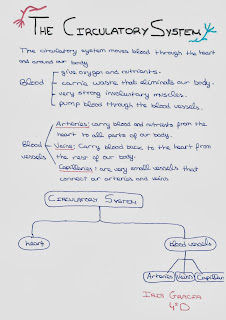 THE CIRCULATORY SYSTEM
The circulatory system moves blood through the heart
and around our body
Blood
- give oxygen and nutrients.
- carrie waste that eliminats our body.
- very strong involuntary muscles.
- pump blood through the blood vessels.
Blood vessels
Arteries: carry blood and nutrients from the
heart to all parts of our body.
Veins: Carry blood back to the heart from
the rest of our body.
Capillaries: are very small vessels that
connect our arteries and veins
CIRCULATORY SYSTEM
heart
Blood vessels
Arteries
Veins
Capillaries
4ºD